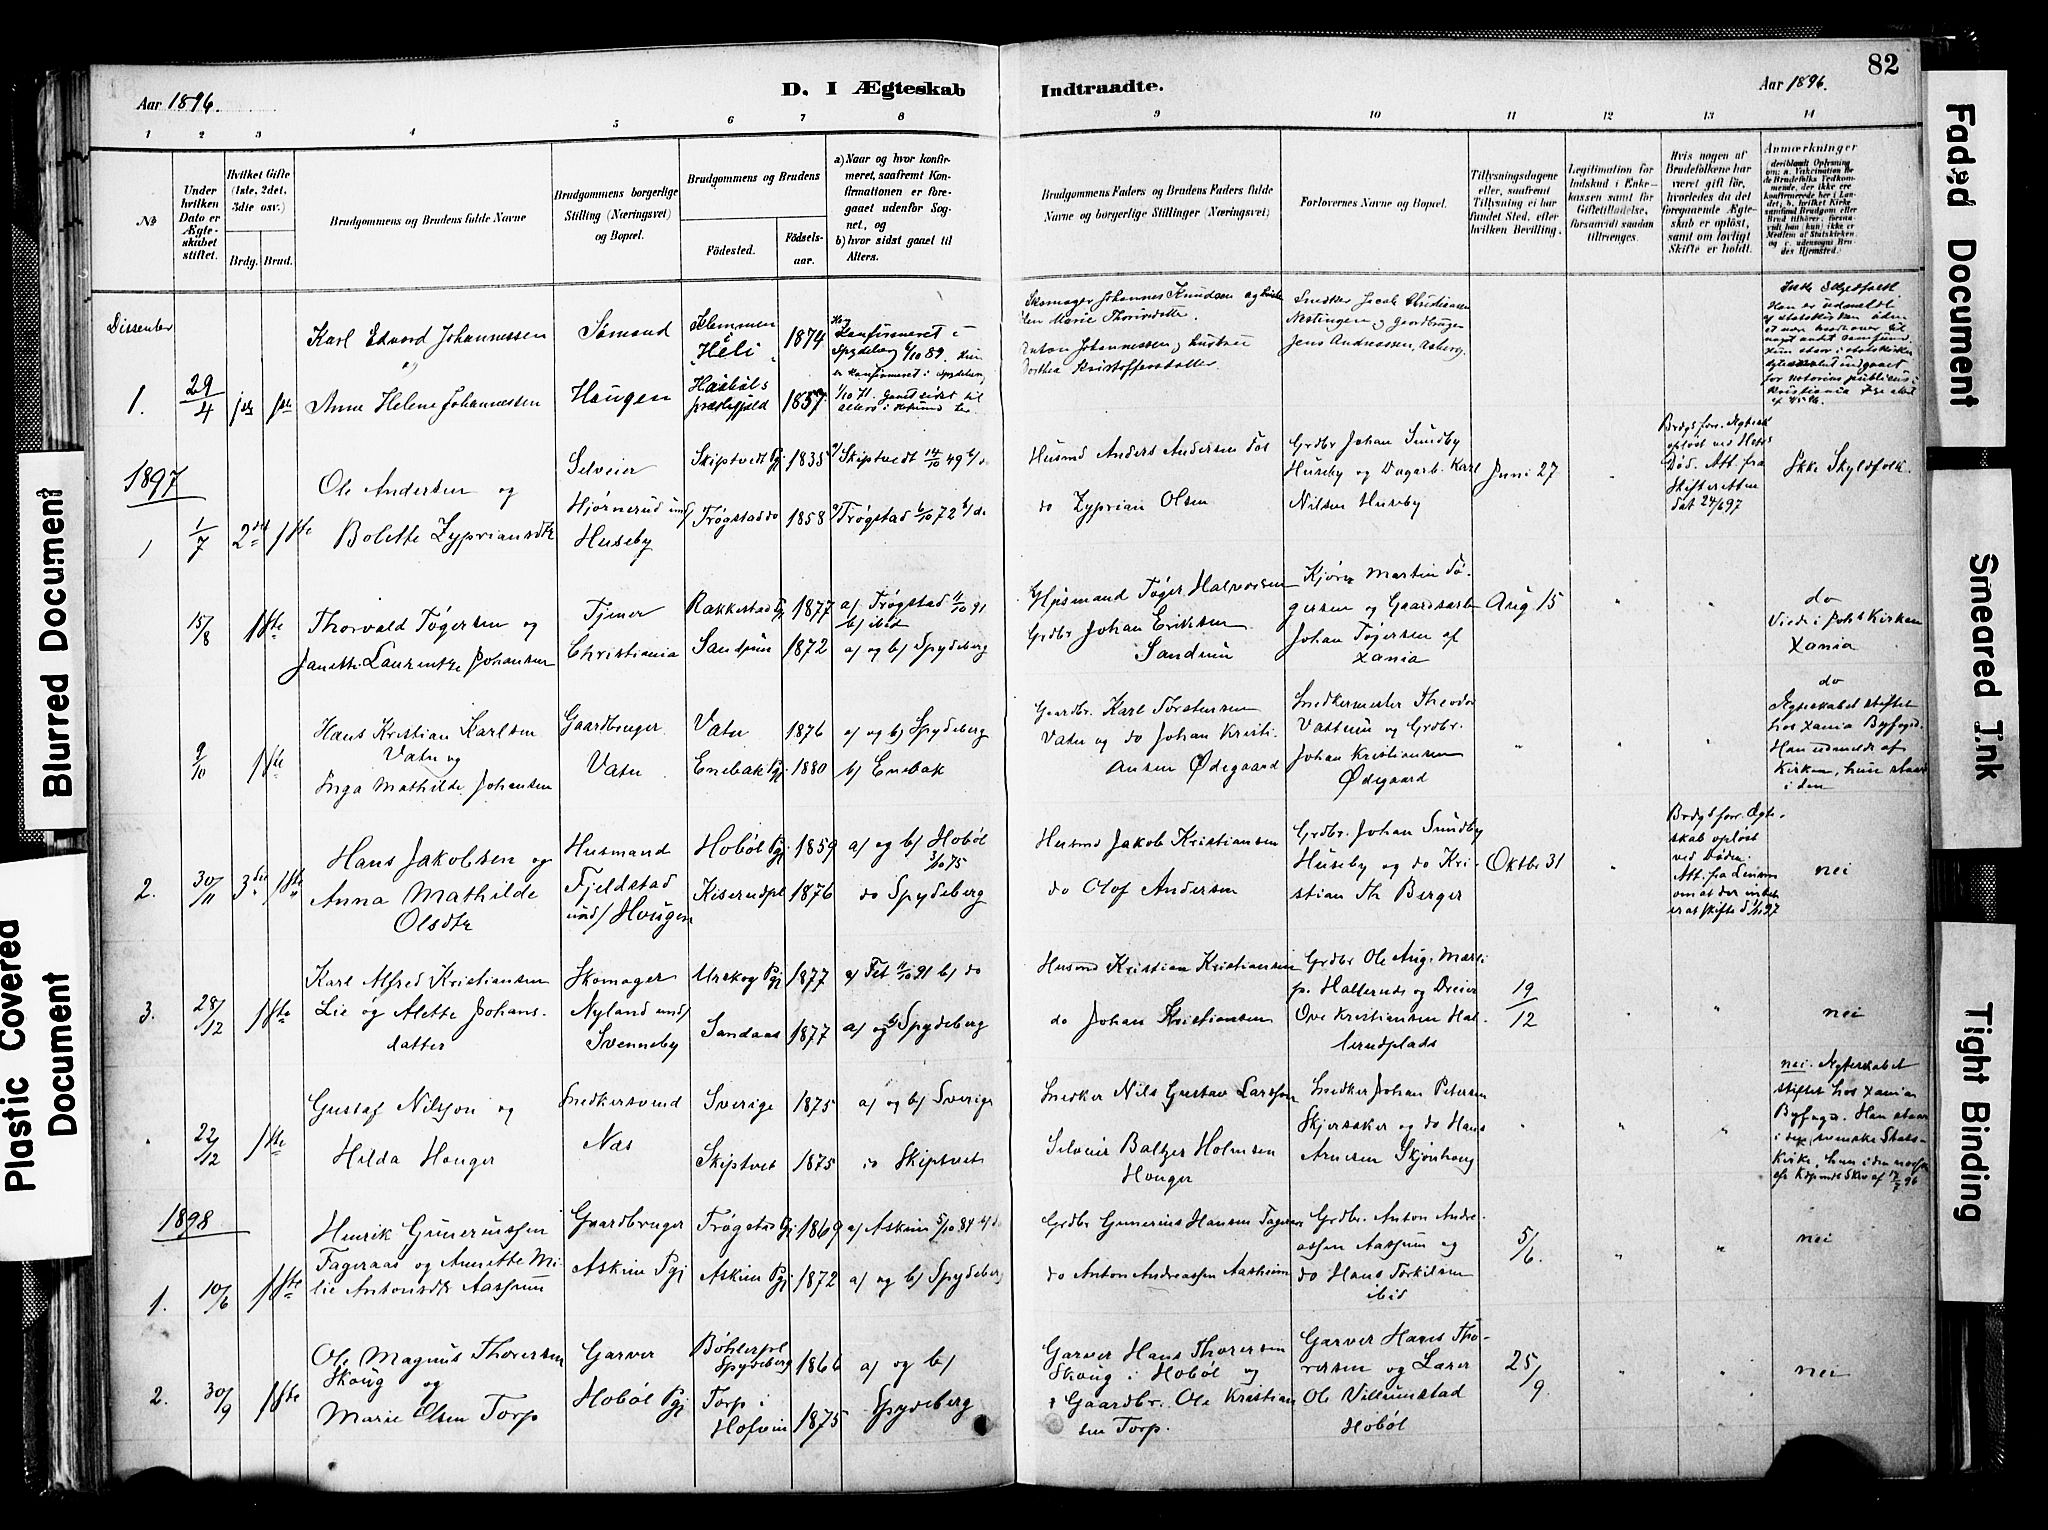 82
Aar 1896.
D. I Ægteskab
Indtraadte.
Aar 1896.
1 2 3 4 5 6 7 8 9 10 11 12 13 14
№
Under hvilken Dato er Ægteskabet stiftet.
Hvilket Gifte (1ste, 2det, 3die osv.)
Brdg. Brud.
Brudgommens og Brudens fulde Navne
Brudgommens borgerlige Stilling (Næringsvei) og Bopæl.
Brudgommens og Brudens
Fødested.
Fødselsaar.
a) Naar og hvor konfirmeret, saafremt Konfirmationen er foregaaet udenfor Sognet, og
b) hvor sidst gaaet til Alters.
Brudgommens Faders og Brudens Faders fulde Navne og borgerlige Stillinger (Næringsvei)
Forlovernes Navne og Bopæl.
Tillysningsdagene eller, saafremt Tillysning ei har fundet Sted, efter hvilken Bevilling.
Legitimation for Indskud i Enkekassen samt for Giftetilladelse, forsaavidt saadan tiltrænges.
Hvis nogen af Brudefolkene har været gift før, hvorledes da det foregaaende Ægteskab er opløst, samt om lovligt Skifte er holdt.
Anmærkninger
Dessember
1. 29/4 1ste 1ste
Karl Edvard Johannessen
Anne Helene Johannessen
Sømand
Haugen
Heli
præstegjeld
1874
1857
Skomager Johannes Knudsen og
Anton Johannessen
Snedker Jacob Christiansen
Jens Andreassen, Asberg.
1897
1 1/7 2det 1ste
Ole Andersen og
Bolette Zypriansdtr
Selveier
Hjørnerud und/
Huseby
Skiptvedt Pgj
Trøgstad do
1835
1858
a/ Skiptvedt 14/10 49 b/ do
a/ Trøgstad 6/10 72 b/ do
Husmd Anders Andersen
do Zyprian Olsen
Grdbr Johan Sundby
Huseby og Dagarb. Karl
Nilsen Huseby
Juni 27
Død. Att. fra
Skifteretten
dat 24/6 97
Ikke Skyldfolk
15/8 1ste
Thorvald Tøgersen og
Janette Laurentze Johansen
Tjener
Christiania
Rakkestad Pgj
Sandum
1877
1872
a/ Trøgstad 11/10 91
b/ ibid
a/ og b/ Spydeberg
Husmand Tøger Halvorsen
Grdbr Johan Eriksen
Sandum
Martin Tøgersen og Gaardsarb
Johan Tøgersen af
Xania
Aug 15
do
Viede i Joh's Kirken
Xania
9/10 1ste
Hans Kristian Karlsen
Vatn og
Inga Mathilde Johansen
Gaardbruger
Vatn
Vatn
Enebak Pgj
1876
1880
a/ og b/ Spydeberg
b/ Enebak
Gaardbr. Karl Torstensen
Vatn og do Johan Kristiansen Ødegaard
Snedkermester Theodor
Vattum og Grdbr.
Johan Kristiansen
Ødegaard
do
Ægteskabet stiftet
hos Xania Byfoged.
Han udmeldt af
Kirken, hun staar
i den
2. 30/11 3die 1ste
Hans Jakobsen og
Anna Mathilde
Olsdtr
Husmand
Fjeldstad
und/ Hougen
Hobøl Pgj
Kiserudpl
1859
1876
a/ og b/ Hobøl
3/10 75
do Spydeberg
Husmd Jakob Kristiansen
do Olof Andersen
Grdbr. Johan Sundby
Huseby og do Kristian Th Berger
Oktbr 31
Brdgs forr. Ægteskab opløst
ved Døden
Att. fra Lensm
nei
3. 28/12 1ste
Karl Alfred Kristiansen
Lie og Alette Johansdatter
Skomager
Nyland und/
Svenneby
Urskog Pgj
Sandaas
1877
1877
a/ Fet 11/10 91 b/ do
a/ og b/ Spydeberg
Husmd Kristian Kristiansen
do Johan Kristiansen
Grdbr Ole Aug. Mari
Ove Kristiansen Hallerudplads
19/12
nei
22/12 1ste
Gustaf Nilsson og
Hilda Houger
Snedkersvend
Næs
Sverige
Skiptvet
1875
1875
a/ og b/ Sverige
do Skiptvet
Snedker Nils Gustav Larsson
Selveier Baltzer Holmsen
Houger
Snedker Johan Petersen
Skjersaker og do Hans
Arnesen Skjønhaug
nei. Ægteskabet
stiftet hos Xania
Byfoged. Han staar
i den svenske Stats-
Kirke, hun i den norske
1898
1. 10/6 1ste
Henrik Gunerussen
Fageraas og Annette Milie Antonsdtr Aasjum
Gaardbruger
Askim Pgj
Trøgstad Pgj
Askim Pgj
1869
1872
a/ Askim 5/10 84 b/ do
a/ og b/ Spydeberg
Grdbr Gunerius Hansen Fageraas
do Anton Andreassen Aasheim
Grdbr. Anton Andreassen Aasjum og
do Hans Torkilsen
ibid
5/6.
nei
2. 30/9 1ste
Ole Magnus Thoresen
Skoug og
Marie Olsen Torp
Garver
Hobøl Pgj
Bøhlerpl
Spydeberg
Torp i
Hofvin
1866
1875
a/ og b/
Spydeberg
Garver Hans Thoresen
Skoug i Hobøl og
Gaardbr. Ole Kristiansen Torp.
Garver Hans Thoresen og Laxer
Ole Villumstad
Hobøl
25/9.
nei
Blurred Document
Plastic Covered Document
Faded Document
Smeared Ink
Tight Binding